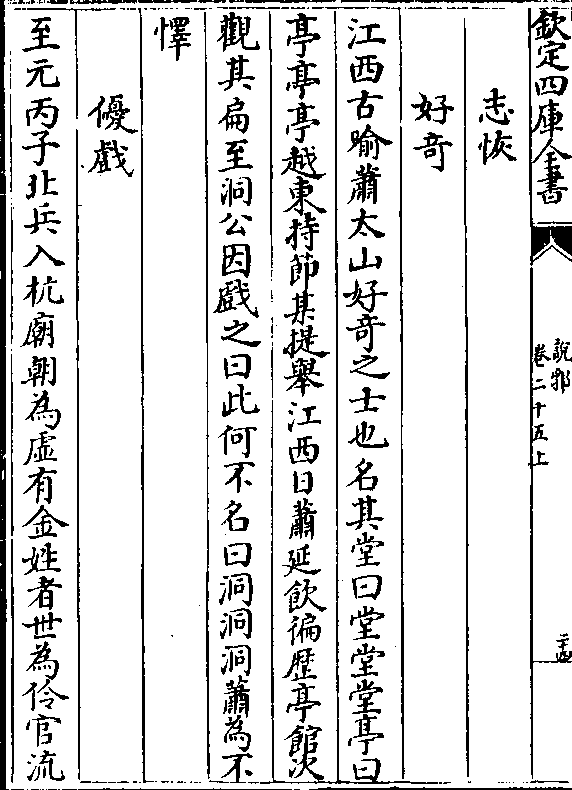 欽定四庫全書
說郛
卷二十五上
二十四
志恢
好奇
江西古喻蕭太山好奇之士也名其堂曰堂堂堂亭曰
亭亭亭越東持節某提舉江西日蕭延飲徧歷亭館次
觀其扁至洞公因戲之曰此何不名曰洞洞洞蕭為不
懌
優戲
至元丙子北兵入杭廟朝為虛有金姓者世為伶官流